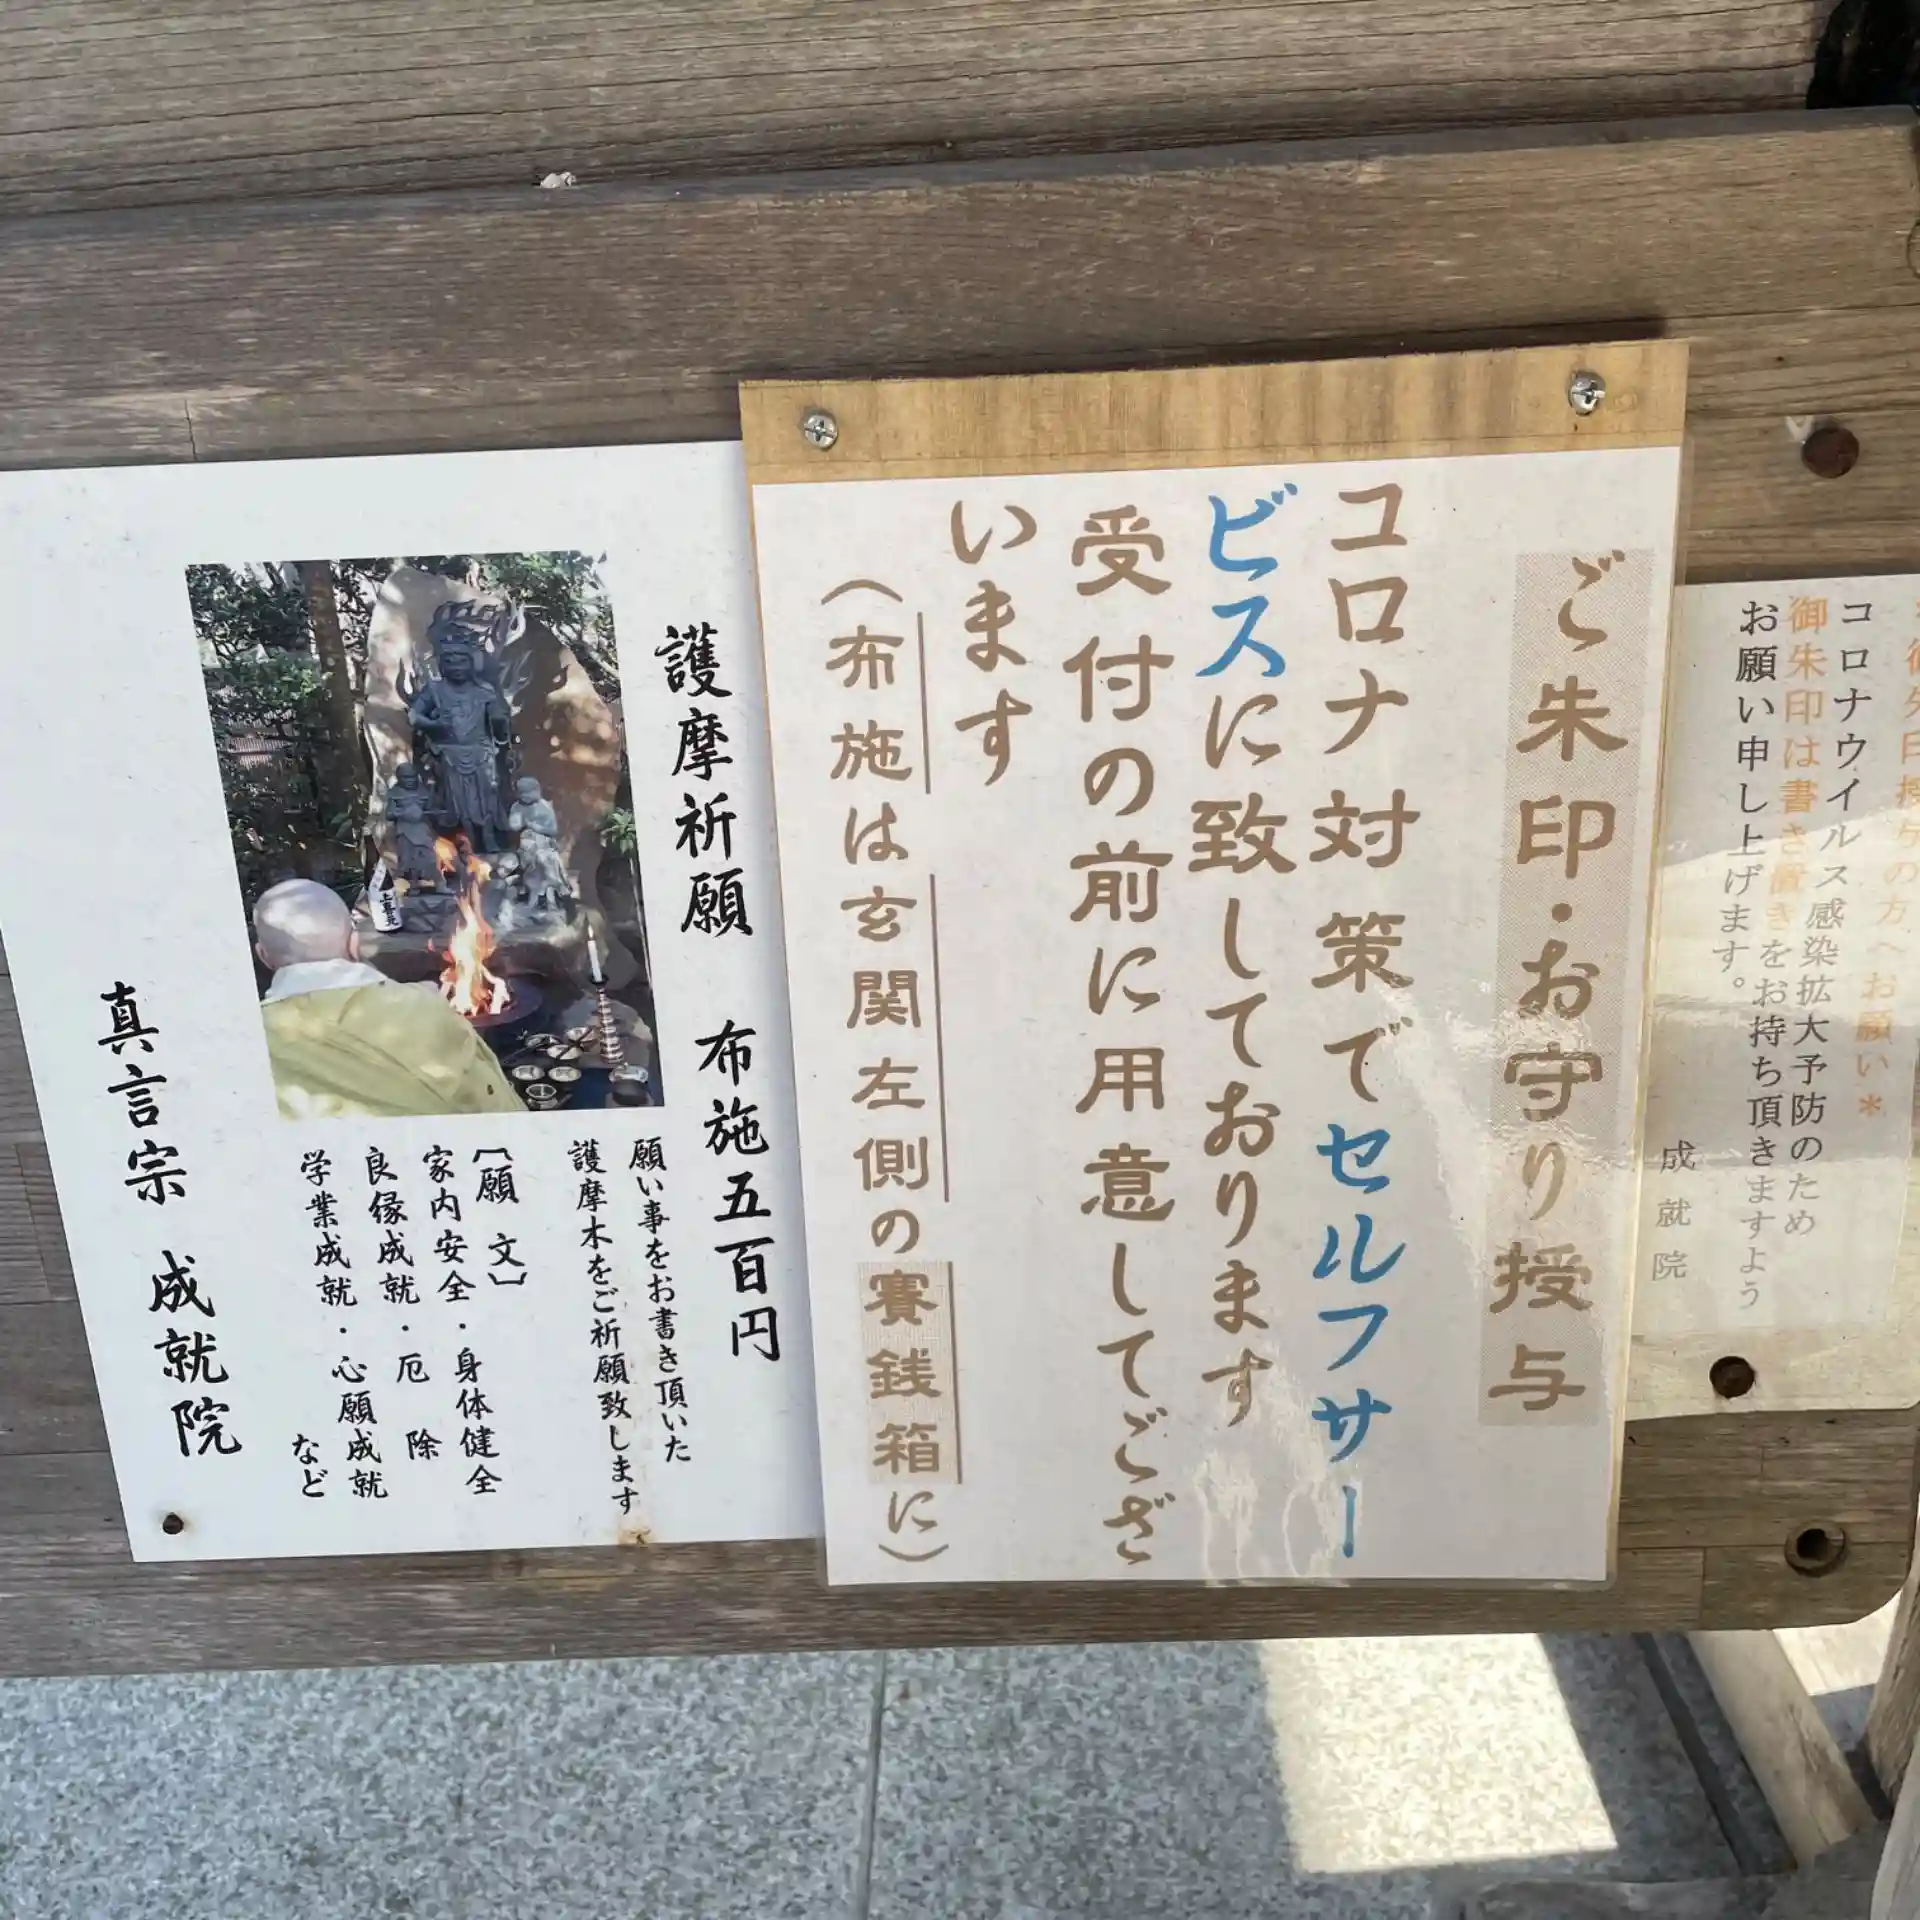 御朱印授与の方へお願い*
コロナウイルス感染拡大予防のため
御朱印は書き置きをお持ち頂きますよう
お願い申し上げます。
成就院
ご朱印・お守り授与
コロナ対策でセルフサー
ビスに致しております
受付の前に用意してござ
います
(布施は玄関左側の賽銭箱に)
護摩祈願 布施五百円
願い事をお書き頂いた
護摩木をご祈願致します
〔願文〕
家内安全・身体健全
良縁成就・厄除
学業成就・心願成就
など
真言宗 成就院
上喜元